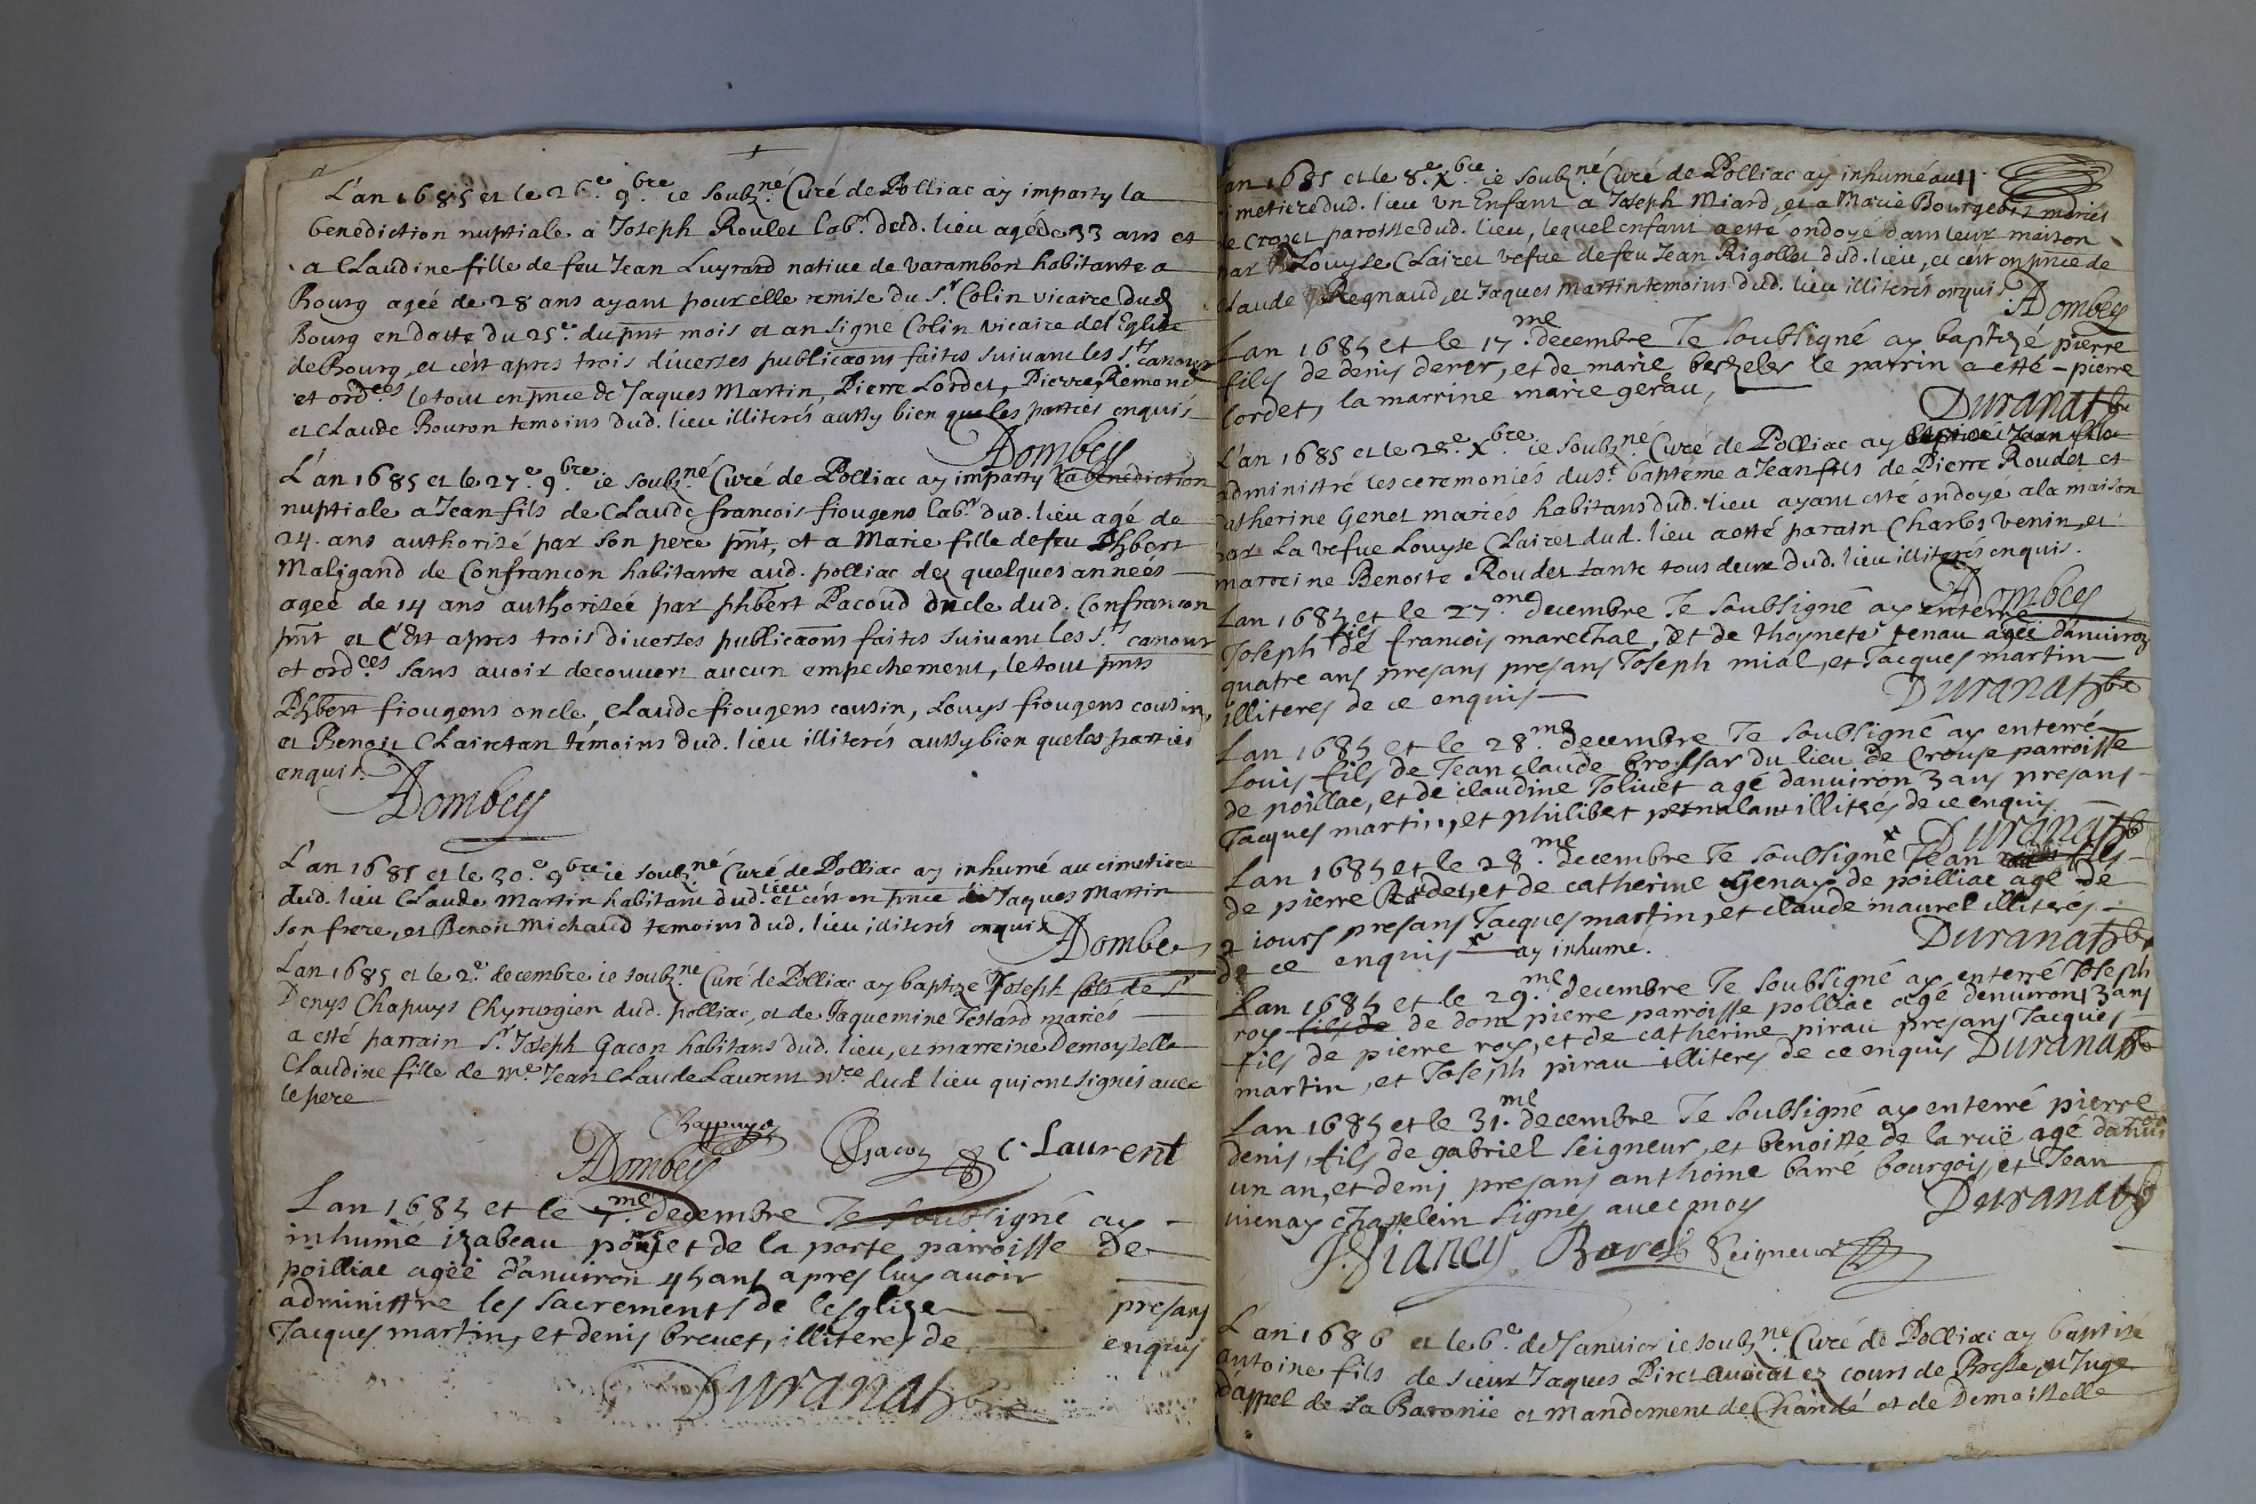 L'an 1685 et le 26.e 9.bre ie soubz.né Curé de Polliac ay imparty la
benediction nuptiale a Joseph Roulet lab.r dud. lieu agé de 33 ans et
a Claudine fille de feu Jean Luyrard natiue de Varambon habitante a
Bourg ageé de 28 ans ayant pour elle remise du S.r Colin vicaire dud
Bourg en datte du 25.e du pnt mois et an signe Colin vicaire de l'Eglise
de Bourg, et c'est apres trois diuerses publicaons faites suiuant les S.ts canons
et ord.ces le tout en pnce de Jaques Martin, Pierre Cordet, Pierre Remond
et Claude Bouron temoins dud. lieu illiterés aussy bien que les parties enquis
ADombey
L'an 1685 et le 27.e 9.bre ie soubz.né Curé de Polliac ay imparty la benediction
nuptiale a Jean fils de Claude francois fiougens lab.r dud. lieu agé de
24. ans authorisé par son pere pnt, et a Marie fille de feu Phbert
Maligand de Confrancon habitante aud. polliac dez quelques années
agée de 14 ans authorisée par phbert Pacoud oncle dud. Confrancon
pnt et C'Est apres trois diuerses publicaons faites suiuant les S.ts canons
et ord.ces sans auoir decouuert aucun empechement, le tout pnts
Phbert fiougens oncle, Claude fiougens cousin, Louys fiougens cousin,
et Benoit Clairetan témoins dud. lieu illiterés aussy bien que les parties
enquis.
ADombey
L'an 1685 et le 30.e 9.bre ie soubz.né Curé de Polliac ay inhumé au cimetiere
dud. lieu Claude Martin habitant dud. lieu et c'est en pnce de Jaques Martin
son frere, et Benoit Michaud temoins dud. lieu illiterés enquis
ADombey
L'an 1685 et le 2.e decembre ie soubz.né Curé de Polliac ay baptizé Joseph fils de S.r
Denys Chapuys Chyrurgien dud. polliac, et de Jaquemine Testard mariés
a esté parrain S.r Joseph Gacon habitans dud. lieu, et marreine Demoyselle
Claudine fille de M.e Jean Claude Laurent N.re dud. lieu qui ont signés auec
le pere
Chappuys
ADombey Gacon C. Laurent
Lan 1685 et le 7.me decembre Je soubsigné ay
inhumé izabeau ponset de la porte parroisse de
poilliac agéé d'anuiron 45 ans apres luy auoir
administre les sacrements de lesglize presans
Jacques martin, et denis breuet, illiteres de enquis
Duranat pbre
L'an 1685 et le 8.e X.bre ie soubz.né Curé de Polliac ay inhumé au
cimetiere dud. lieu un Enfant a Joseph Miard, et a Marie Bourgeois mariés
de Crozet paroisse dud. lieu, lequel enfant a esté ondoyé dans leur maison
par Louyse Clairet vefue de feu Jean Rigollet dud. lieu, et c'est en pnce de
Claude Regnaud, et Jaques Martin temoins dud. lieu illiterés enquis.
ADombey
Lan 1685 et le 17.me decembre Je soubsigné ay baptizé pierre
fils de denis derer, et de marie beszeler le parrin a etté pierre
Cordet, la marrine marie gerau,
Duranat pbre
L'an 1685 et le 25.e X.bre ie soubz.né Curé de Polliac ay
administré les ceremonies du S.t baptéme a Jean fils de Pierre Roudet et
Catherine Genet mariés habitans dud. lieu ayant esté ondoyé a la maison
par La vefue Louyse Clairet dud. lieu a etté parain Charles Venin, et
marreine Benoite Roudet tante tous deux dud. lieu illiterés enquis.
ADombey
Lan 1685 et le 27.me decembre Je soubsigné ay enterré
Joseph fils de francois marechal, et de thoynete tenau agéé danuiron
quatre ans presans presans Joseph mial, et Jacques martin
illiteres de ce enquis
Duranat pbre
Lan 1685 et le 28.me decembre Je soubsigné ay enterré
Louis fils de Jean claude brossar du lieu de Crouse parroisse
de poillac, et de claudine Toliuet agé danuiron 3 ans presans
Jacques martin, et philibert pernalant illitrés de ce enquis
Duranat pbre
Lan 1685 et le 28.me decembre Je soubsigné x Jean fils
de pierre Rodet, et de catherine Genay de poilliac agé de
2 iours presans Jacques martin, et claude maurel illiterés
de ce enquis x ay inhumé.
Duranat pbre
Lan 1685 et le 29.me decembre Je soubsigné ay enterré Joseph
roy fils de de dom pierre parroisse polliac agé denuiron 13 ans
fils de pierre roy, et de catherine pirau presans Jacques
martin, et Joseph pirau illiteres de ce enquis Duranat pbre
Lan 1685 et le 31.me decembre Je soubsigné ay enterré pierre
denis, fils de gabriel seigneur, et benoitte de la ruë agé danui
un an, et demi presans anthoine barré bourgois, et Jean
uienay chapelein signés auec moy
Duranat pbre
Seigneur
L'an 1686 et le 6.e de Januier ie soubz.né Curé de Polliac ay baptisé
antoine fils de sieur Jaques Piret auocat ez cours de Bresse, et Juge
d'appel de la Baronie et mandement de Chandé et de Demoiselle